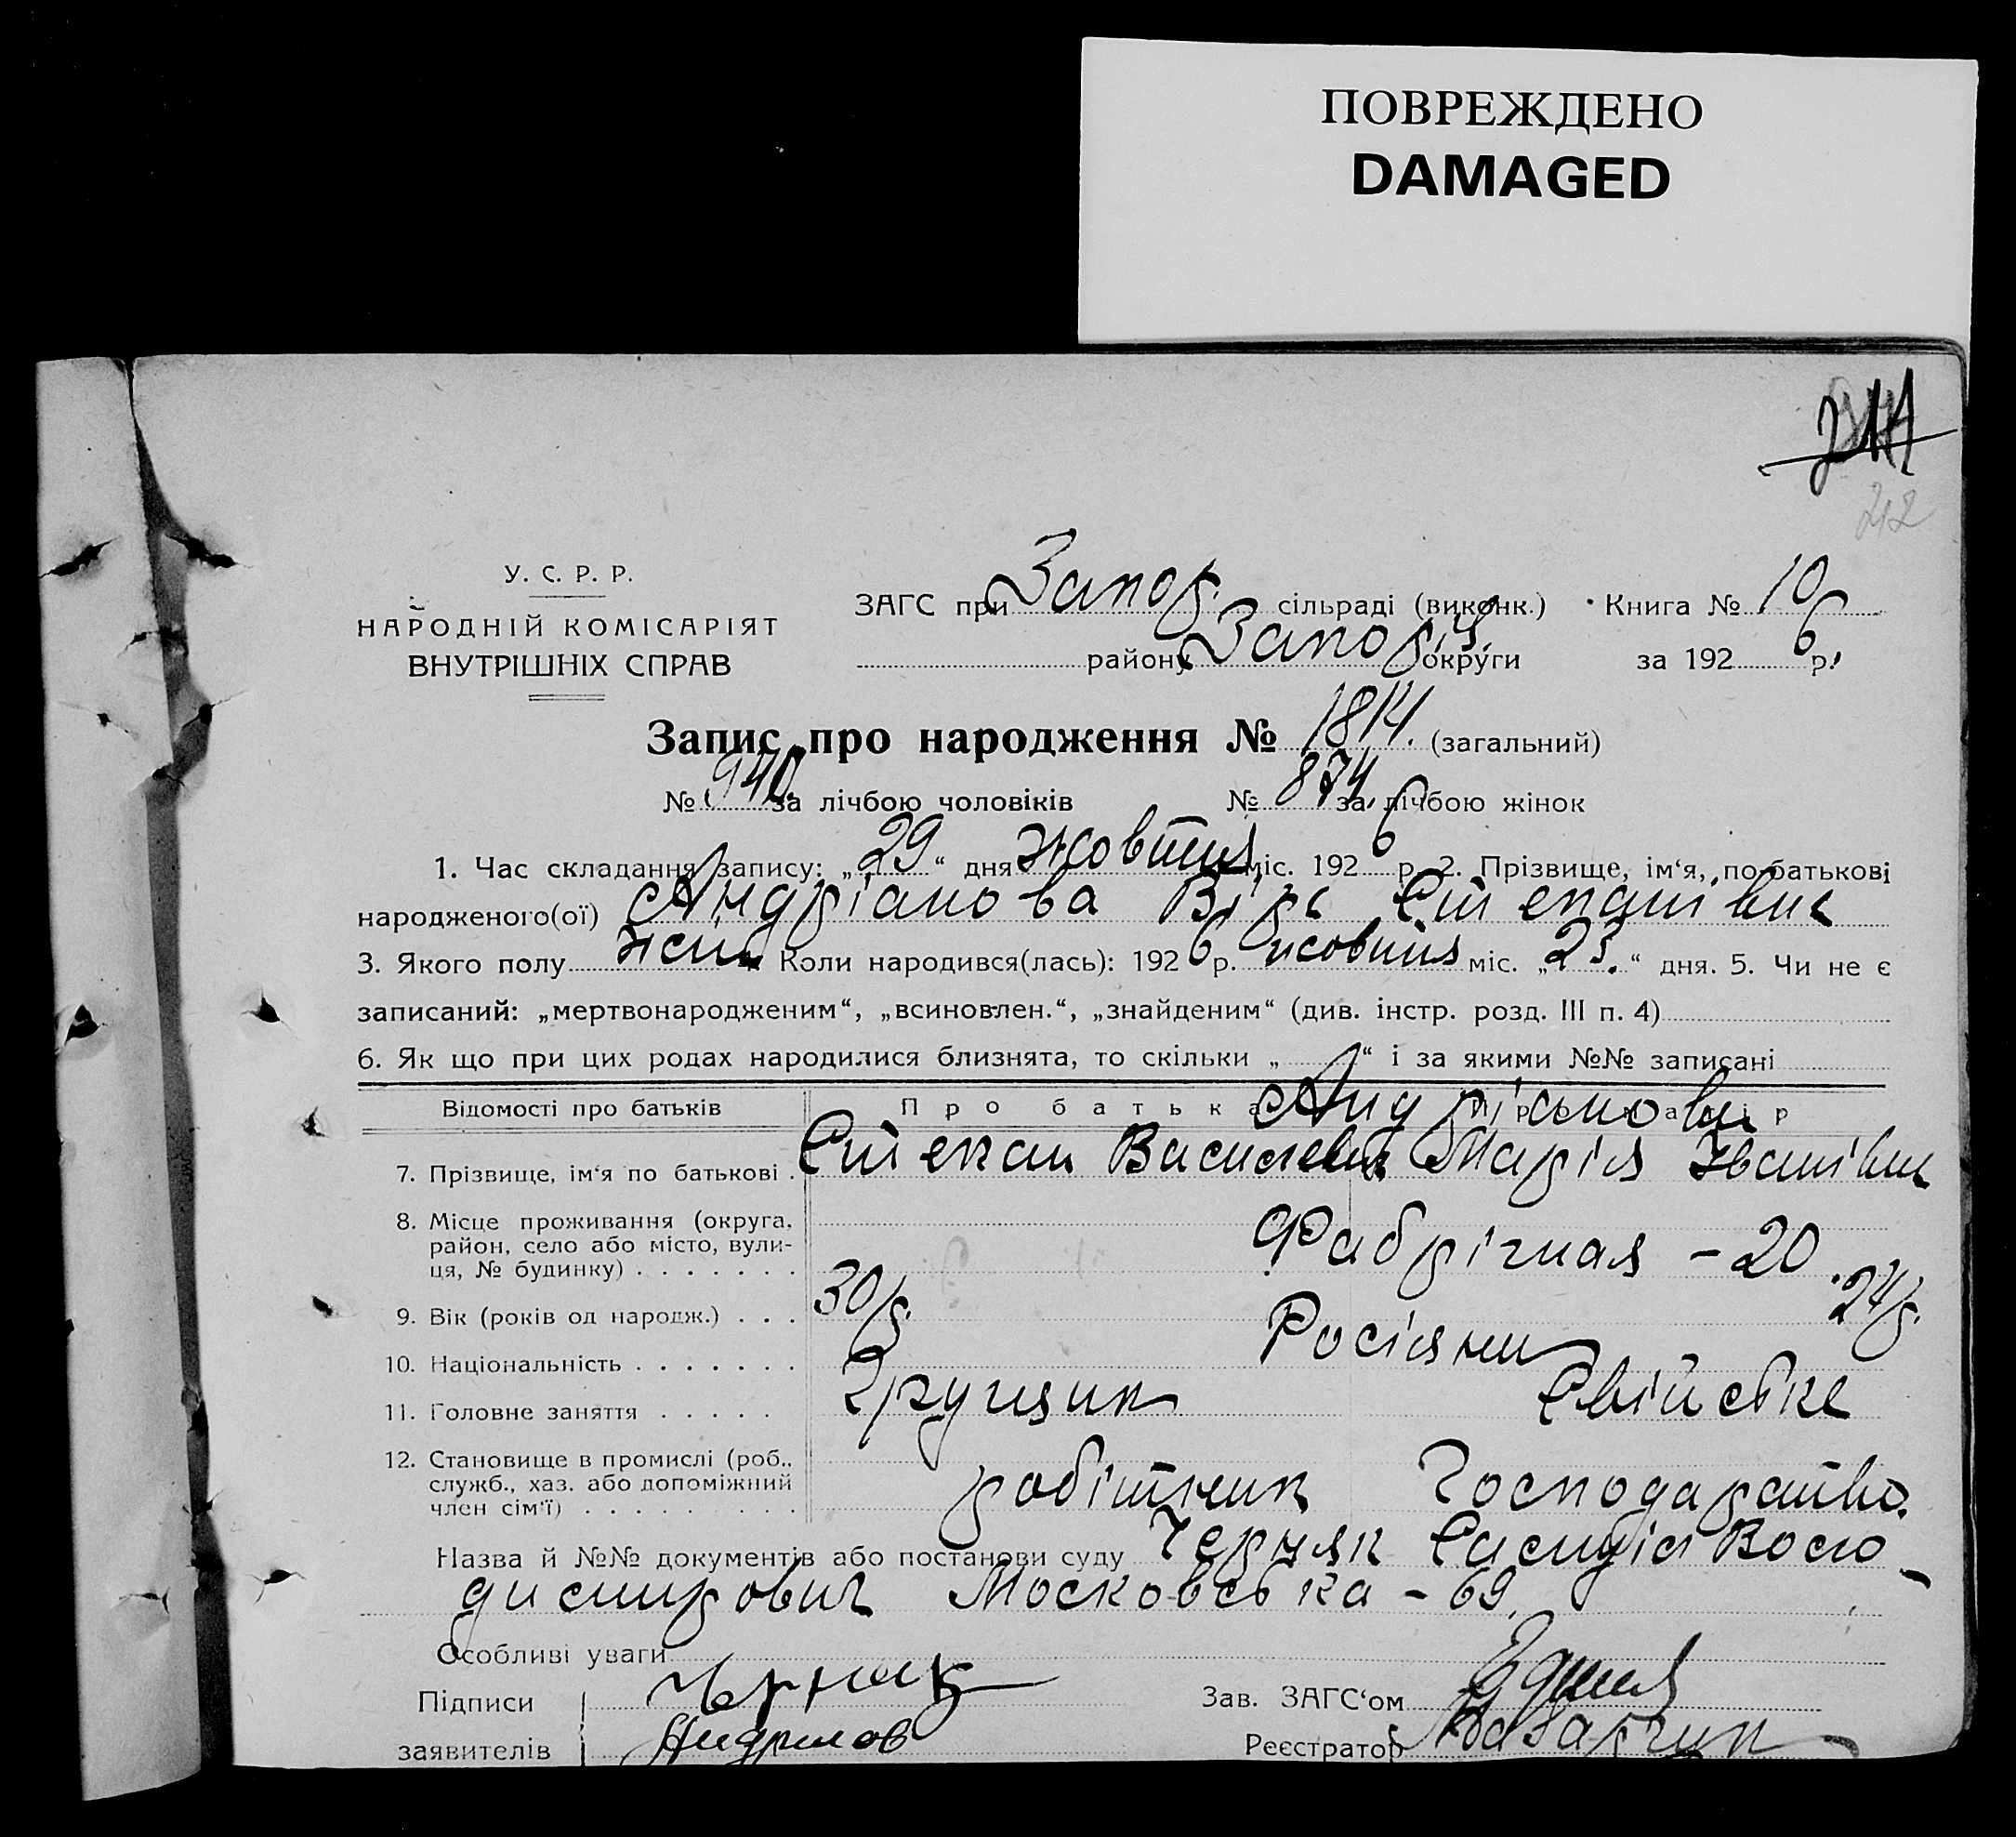 ПОВРЕЖДЕНО
DAMAGED
212
У. С. Р. Р.
НАРОДНІЙ КОМІСАРІЯТ
ВНУТРІШНІХ СПРАВ
ЗАГС при Запор. сільраді (виконк.) Книга № 10
району Запоріз. округи за 1926 р.
Запис про народження № 1814. (загальний)
№ 940 за лічбою чоловіків № 874. за лічбою жінок
1. Час складання запису: „29“ дня жовтня міс. 1926 р. 2. Прізвище, ім'я, по-батькові
народженого(ої) Андріанова Віра Степанівна
3. Якого полу жін. Коли народився(лась): 1926 р. жовтня міс. „23.“ дня. 5. Чи не є
записаний: „мертвонародженим“, „всиновлен.“, „знайденим“ (див. інстр. розд. III п. 4)
6. Як що при цих родах народилися близнята, то скільки „ “ і за якими №№ записані
Відомості про батьків Про батька Про матір
Андріанови
7. Прізвище, ім'я по батькові Степан Василевич Марія Іванівна
8. Місце проживання (округа, район, село або місто, вулиця, № будинку) Фабрічная - 20
9. Вік (років од народж.) 30 р. 24 р.
10. Національність Росіяни
11. Головне заняття Грущик Свійське
12. Становище в промислі (роб., служб., хаз. або допоміжний член сім'ї) робітник Господарство.
Назва й №№ документів або постанови суду Черняк
Московська - 69.
Особливі уваги
Підписи Черняк Зав. ЗАГС'ом
заявителів Андрианов Реєстратор